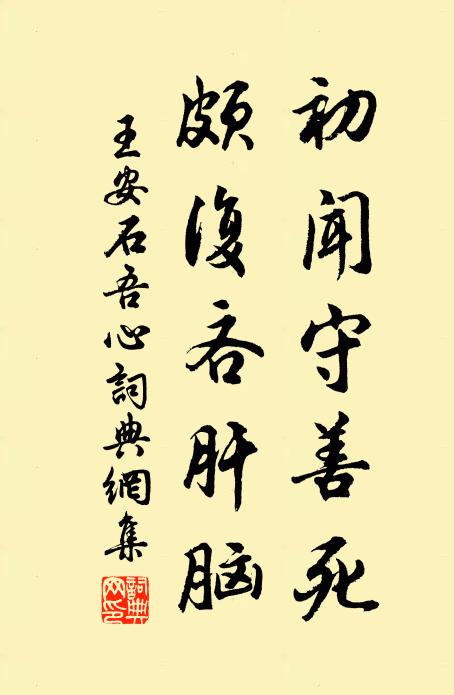 初闻守善死
颇復吝肝脑
王安石吾心詞典網集
詞典網印